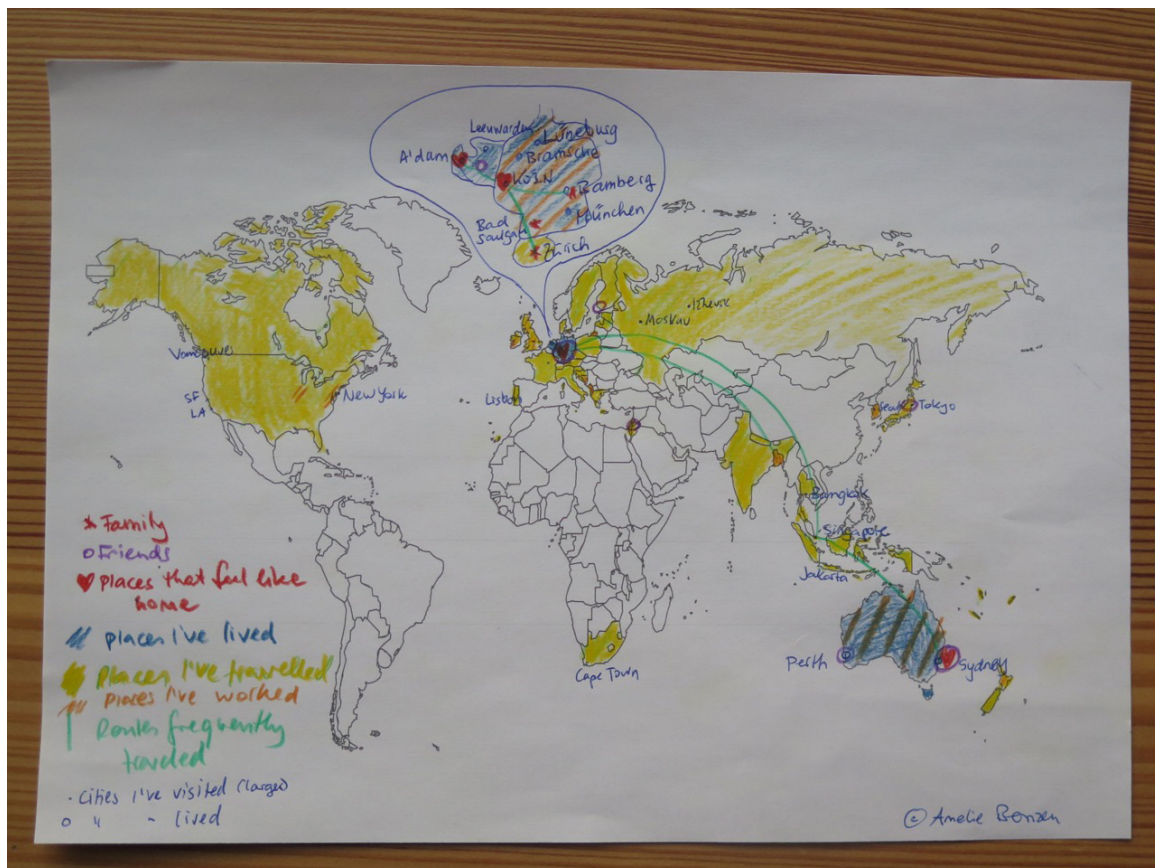 Leeuwarden
Lüneburg
A'dam
Bramsche
Köln
Bamberg
München
Bad
Saulgau
Zürich
Izhevsk
Moskau
Vancouver
SF
LA
New York
Lisbon
Seoul
Tokyo
Bangkok
Singapore
Jakarta
Perth
Sydney
Cape Town
* Family
o Friends
♥ places that feel like
home
places I've lived
places I've travelled
places I've worked
Routes frequently
traveled
· Cities I've visited (larger)
o " - lived
© Amelie Benzen